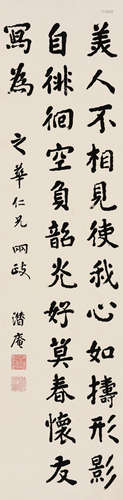 美人不相見使我心如擣形影
自徘徊空負韶光好莫春懷友
寫為
之華仁兄兩政
潛庵